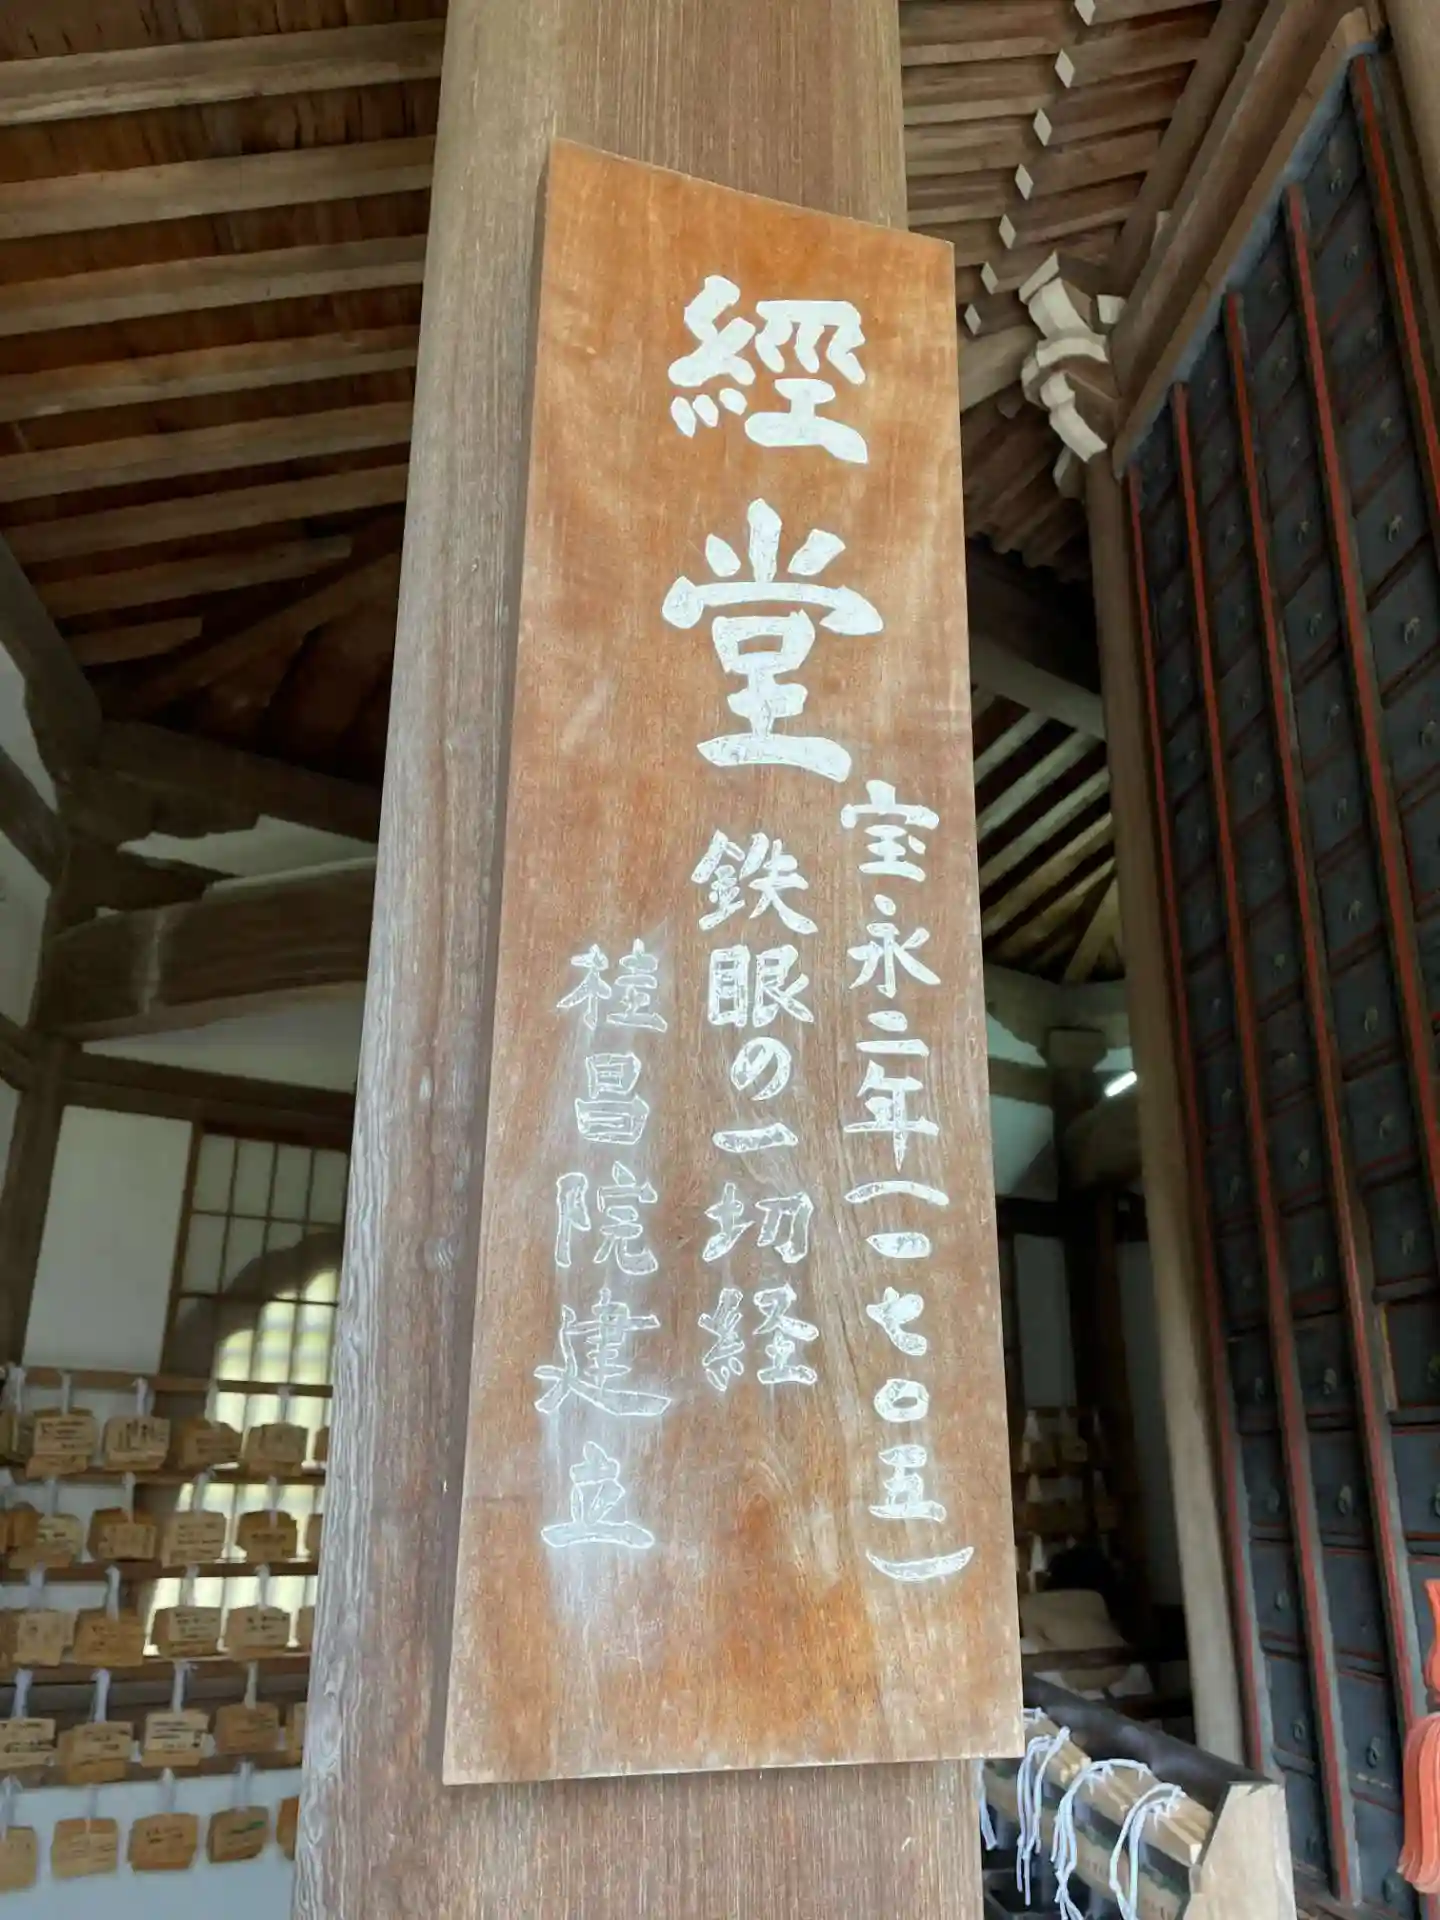 經堂
宝永二年(一七〇五)
鉄眼の一切経
桂昌院建立